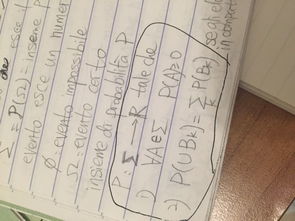 Σ = P(Ω) = insieme P
evento esce un numer
∅ evento impossibile
Ω = evento certo
insieme di probabilità P
P: Σ → R tale che
1) ∀A∈Σ P(A)≥0
2) P(∪Bₖ)=∑ₖ P(Bₖ) se gli e
incompat